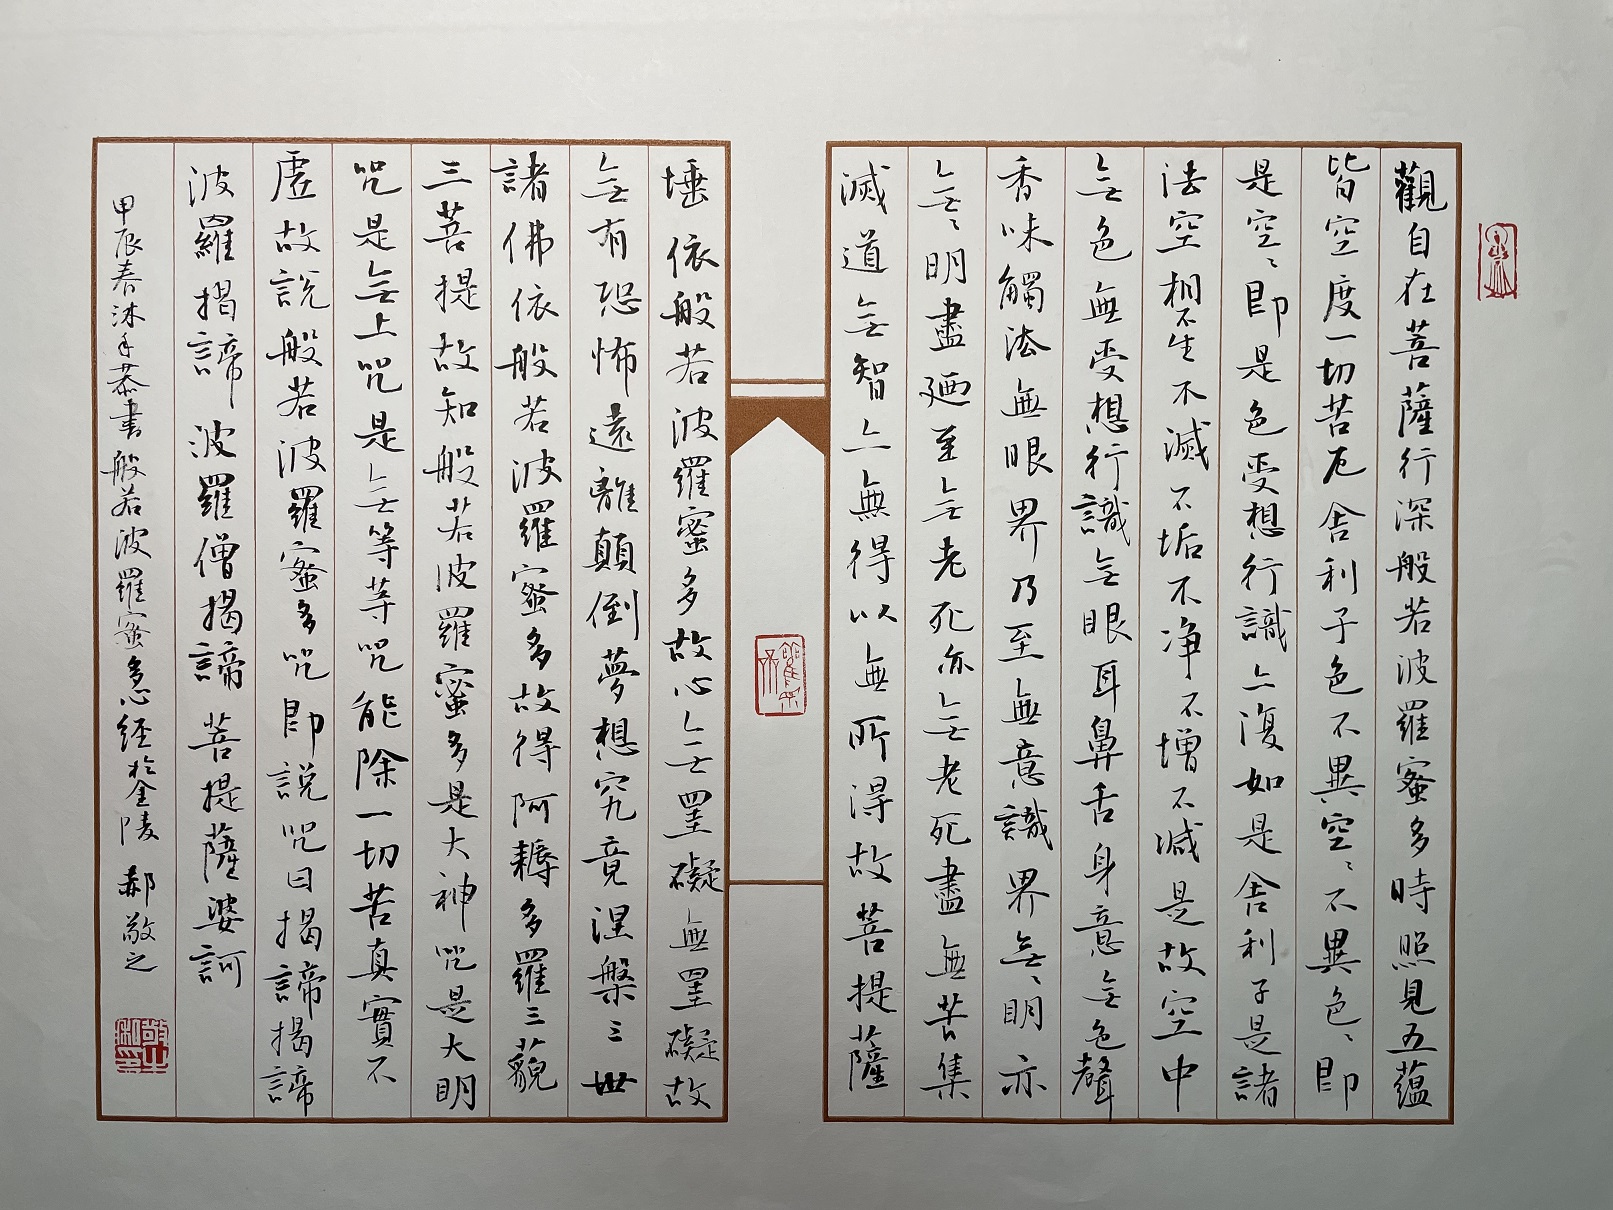 觀自在菩薩行深般若波羅蜜多時照見五蘊
皆空度一切苦厄舍利子色不異空〻不異色〻即
是空〻即是色受想行識亦復如是舍利子是諸
法空相不生不滅不垢不净不增不減是故空中
無色無受想行識無眼耳鼻舌身意無色聲
香味觸法無眼界乃至無意識界無〻明亦
無〻明盡廼至無老死亦無老死盡無苦集
滅道無智亦無得以無所得故菩提薩
埵依般若波羅蜜多故心無罣礙無罣礙故
無有恐怖遠離顛倒夢想究竟涅槃三世
諸佛依般若波羅蜜多故得阿耨多羅三藐
三菩提故知般若波羅蜜多是大神咒是大明
咒是無上咒是無等等咒能除一切苦真實不
虛故說般若波羅蜜多咒即說咒曰揭諦揭諦
波羅揭諦波羅僧揭諦菩提薩婆訶
甲辰春沐手恭書般若波羅蜜多心經於金陵 郝敬之
敬之私印